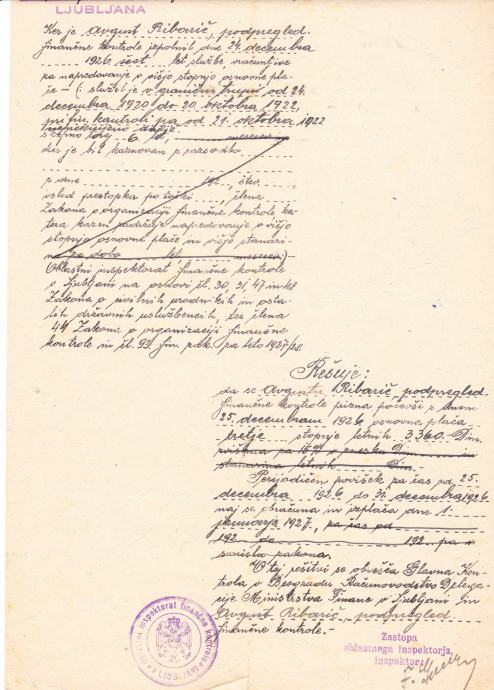 LJUBLJANA
Ker je Avgust Ribarič, podpregled.
finančne kontrole izpolnil dne 24. decembra
1926 šest let službe računljive
za napredovanje v višjo stopnjo osnovne pla-
če - (: služil je v graničnoj trupi od 24.
decembra 1920 do 20. oktobra 1922,
pri fin. kontroli pa od 21. oktobra 1922
ker je bil kaznovan z razsodbo
z dne 192 , štev.
vsled prestopka po točki , člena
Zakona o organizaciji finančne kontrole ka-
tera kazen zadržuje napredovanje v višjo
stopnjo osnovne plače in višjo stanari-
no za dobo let mesecev)
Oblastni inspektorat finančne kontrole
v Ljubljani na osnovi čl. 30, 31, 47 in
Zakona o civilnih uradnikih in osta-
lih državnih uslužbencih, ter člena
44 Zakona o organizaciji finančne
kontrole in čl. 93. fin. zak. za leto 1927/28.
Rešuje:
da se Avgustu Ribarič, podpregled.
finančne kontrole prizna počevši z dnem
25. decembrom 1926 osnovna plača
tretje stopnje letnih 3360 Din.
zvišana za 15% v znesku Din in
stanarina letnih Din.
Perijodičen povišek za čas od 25.
decembra 1926 do 31. decembra 1926
naj se obračuna in izplača dne 1.
januarja 1927, za čas od
192 do 192 pa v
smislu zakona.
O tej rešitvi se obvešča Glavna Kon-
trola v Beogradu Računovodstvo Delega-
cije Ministrstva Financ v Ljubljani in
Avgust Ribarič, podpregled.
finančne kontrole.-
Zastopa
oblastnega inspektorja,
inspektor:
Oblastni inspektorat finančne kontrole
LJUBLJANA